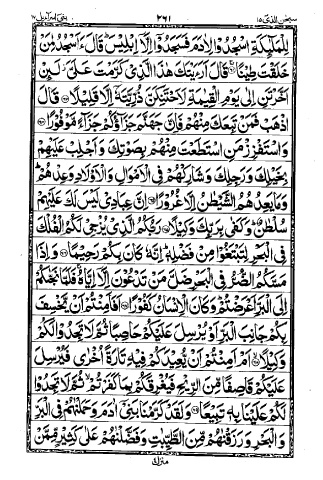 سبحن الذی ١٥ ٢٦١ بنی اسرآءیل ١٧
لِلْمَلٰٓئِكَةِ اسْجُدُوْا لِاٰدَمَ فَسَجَدُوْۤا اِلَّاۤ اِبْلِیْسَؕ قَالَ ءَاَسْجُدُ لِمَنْ
خَلَقْتَ طِیْنًاۚ قَالَ اَرَءَیْتَكَ هٰذَا الَّذِیْ كَرَّمْتَ عَلَیَّ٘ لَىِٕنْ
اَخَّرْتَنِ اِلٰى یَوْمِ الْقِیٰمَةِ لَاَحْتَنِكَنَّ ذُرِّیَّتَهٗۤ اِلَّا قَلِیْلًا قَالَ
اذْهَبْ فَمَنْ تَبِعَكَ مِنْهُمْ فَاِنَّ جَهَنَّمَ جَزَآؤُكُمْ جَزَآءً مَّوْفُوْرًا
وَاسْتَفْزِزْ مَنِ اسْتَطَعْتَ مِنْهُمْ بِصَوْتِكَ وَاَجْلِبْ عَلَیْهِمْ
بِخَیْلِكَ وَرَجِلِكَ وَشَارِكْهُمْ فِی الْاَمْوَالِ وَالْاَوْلَادِ وَعِدْهُمْؕ
وَمَا یَعِدُهُمُ الشَّیْطٰنُ اِلَّا غُرُوْرًا اِنَّ عِبَادِیْ لَیْسَ لَكَ عَلَیْهِمْ
سُلْطٰنٌؕ وَكَفٰى بِرَبِّكَ وَكِیْلًا رَبُّكُمُ الَّذِیْ یُزْجِیْ لَكُمُ الْفُلْكَ
فِی الْبَحْرِ لِتَبْتَغُوْا مِنْ فَضْلِهٖؕ اِنَّهٗ كَانَ بِكُمْ رَحِیْمًا وَاِذَا
مَسَّكُمُ الضُّرُّ فِی الْبَحْرِ ضَلَّ مَنْ تَدْعُوْنَ اِلَّاۤ اِیَّاهُۚ فَلَمَّا نَجّٰىكُمْ
اِلَى الْبَرِّ اَعْرَضْتُمْؕ وَكَانَ الْاِنْسَانُ كَفُوْرًا اَفَاَمِنْتُمْ اَنْ یَّخْسِفَ
بِكُمْ جَانِبَ الْبَرِّ اَوْ یُرْسِلَ عَلَیْكُمْ حَاصِبًا ثُمَّ لَا تَجِدُوْا لَكُمْ
وَكِیْلًا اَمْ اَمِنْتُمْ اَنْ یُّعِیْدَكُمْ فِیْهِ تَارَةً اُخْرٰى فَیُرْسِلَ
عَلَیْكُمْ قَاصِفًا مِّنَ الرِّیْحِ فَیُغْرِقَكُمْ بِمَا كَفَرْتُمْۙ ثُمَّ لَا تَجِدُوْا
لَكُمْ عَلَیْنَا بِهٖ تَبِیْعًا وَلَقَدْ كَرَّمْنَا بَنِیْۤ اٰدَمَ وَحَمَلْنٰهُمْ فِی الْبَرِّ
وَالْبَحْرِ وَرَزَقْنٰهُمْ مِّنَ الطَّیِّبٰتِ وَفَضَّلْنٰهُمْ عَلٰى كَثِیْرٍ مِّمَّنْ